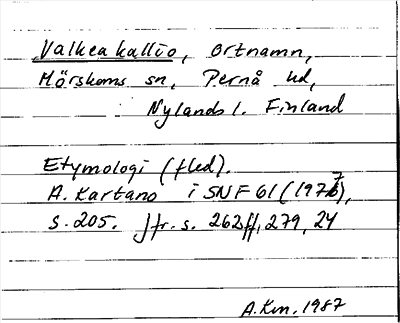 Valkeakallio, Ortnamn,
Mörskoms sn, Pernå hd,
Nylands l. Finland
Etymologi (fled).
A. Kartano i SNF 61 (1977),
s. 205. Jfr. s. 262ff, 279, 24
A.Km. 1987